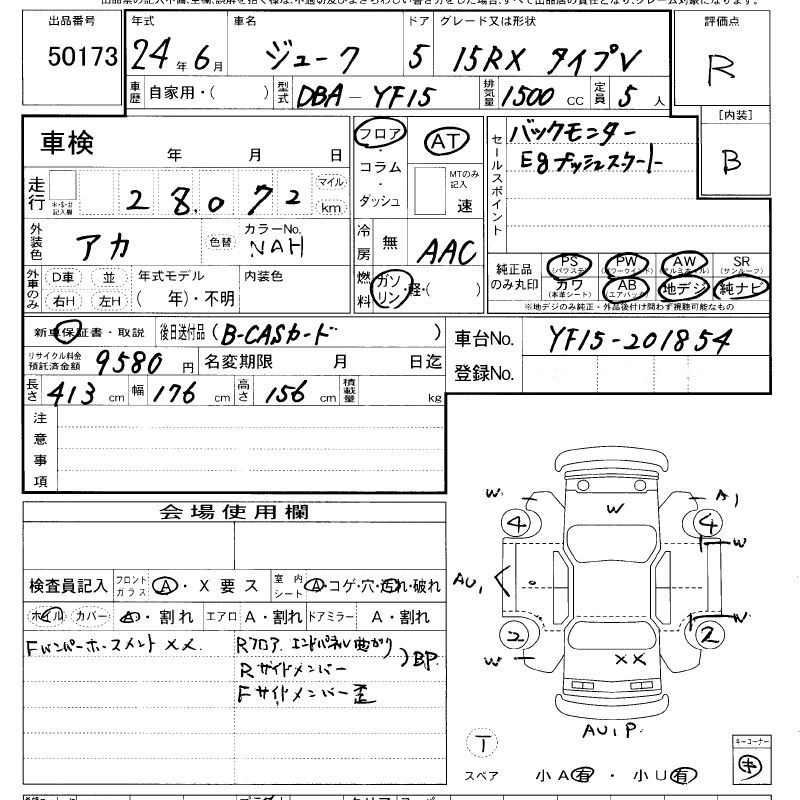 出品番号
50173
年式
24年6月
車名
ジューク
ドア
5
グレード又は形状
15RX タイプV
評価点
R
車歴
自家用・( )
型式
DBA-YF15
排気量
1500 CC
定員
5 人
[内装]
B
車検
年 月 日
走行
*・$・#
記入欄
28,072
マイル
km
フロア
・
コラム
・
ダッシュ
AT
MTのみ
記入
速
セールスポイント
バックモニター
Egプッシュスタート
外装色
アカ
色替
カラーNo.
NAH
冷房
無
AAC
純正品
のみ丸印
PS
(パワステ)
PW
(パワーウインド)
AW
(アルミホイル)
SR
(サンルーフ)
カワ
(本革シート)
AB
(エアバック)
地デジ
純ナビ
※地デジのみ純正・外品後付け問わず視聴可能なもの
外車のみ
D車
並
右H
左H
年式モデル
( 年)・不明
内装色
燃料
ガソリン・軽・( )
新車保証書・取説
後日送付品 (B-CASカード )
車台No.
YF15-201854
リサイクル料金
預託済金額
9580 円
名変期限 月 日迄
登録No.
長さ 413 cm
幅 176 cm
高さ 156 cm
積載量 kg
注意事項
会場使用欄
検査員記入
フロントガラス
A・X要ス
室内シート
A・コゲ・穴・汚れ・破れ
ホイル
カバー
A・割れ
エアロ
A・割れ
ドアミラー
A・割れ
Fバンパーホースメント XX
Rフロア エンドパネル曲がり
Rサイドメンバー
)BP
Fサイドメンバー歪
W
W
A1
4
4
W
AU1
2
2
W
W
W
XX
AU1P
T
スペア
小A有・小U有
キーコーナー
キ